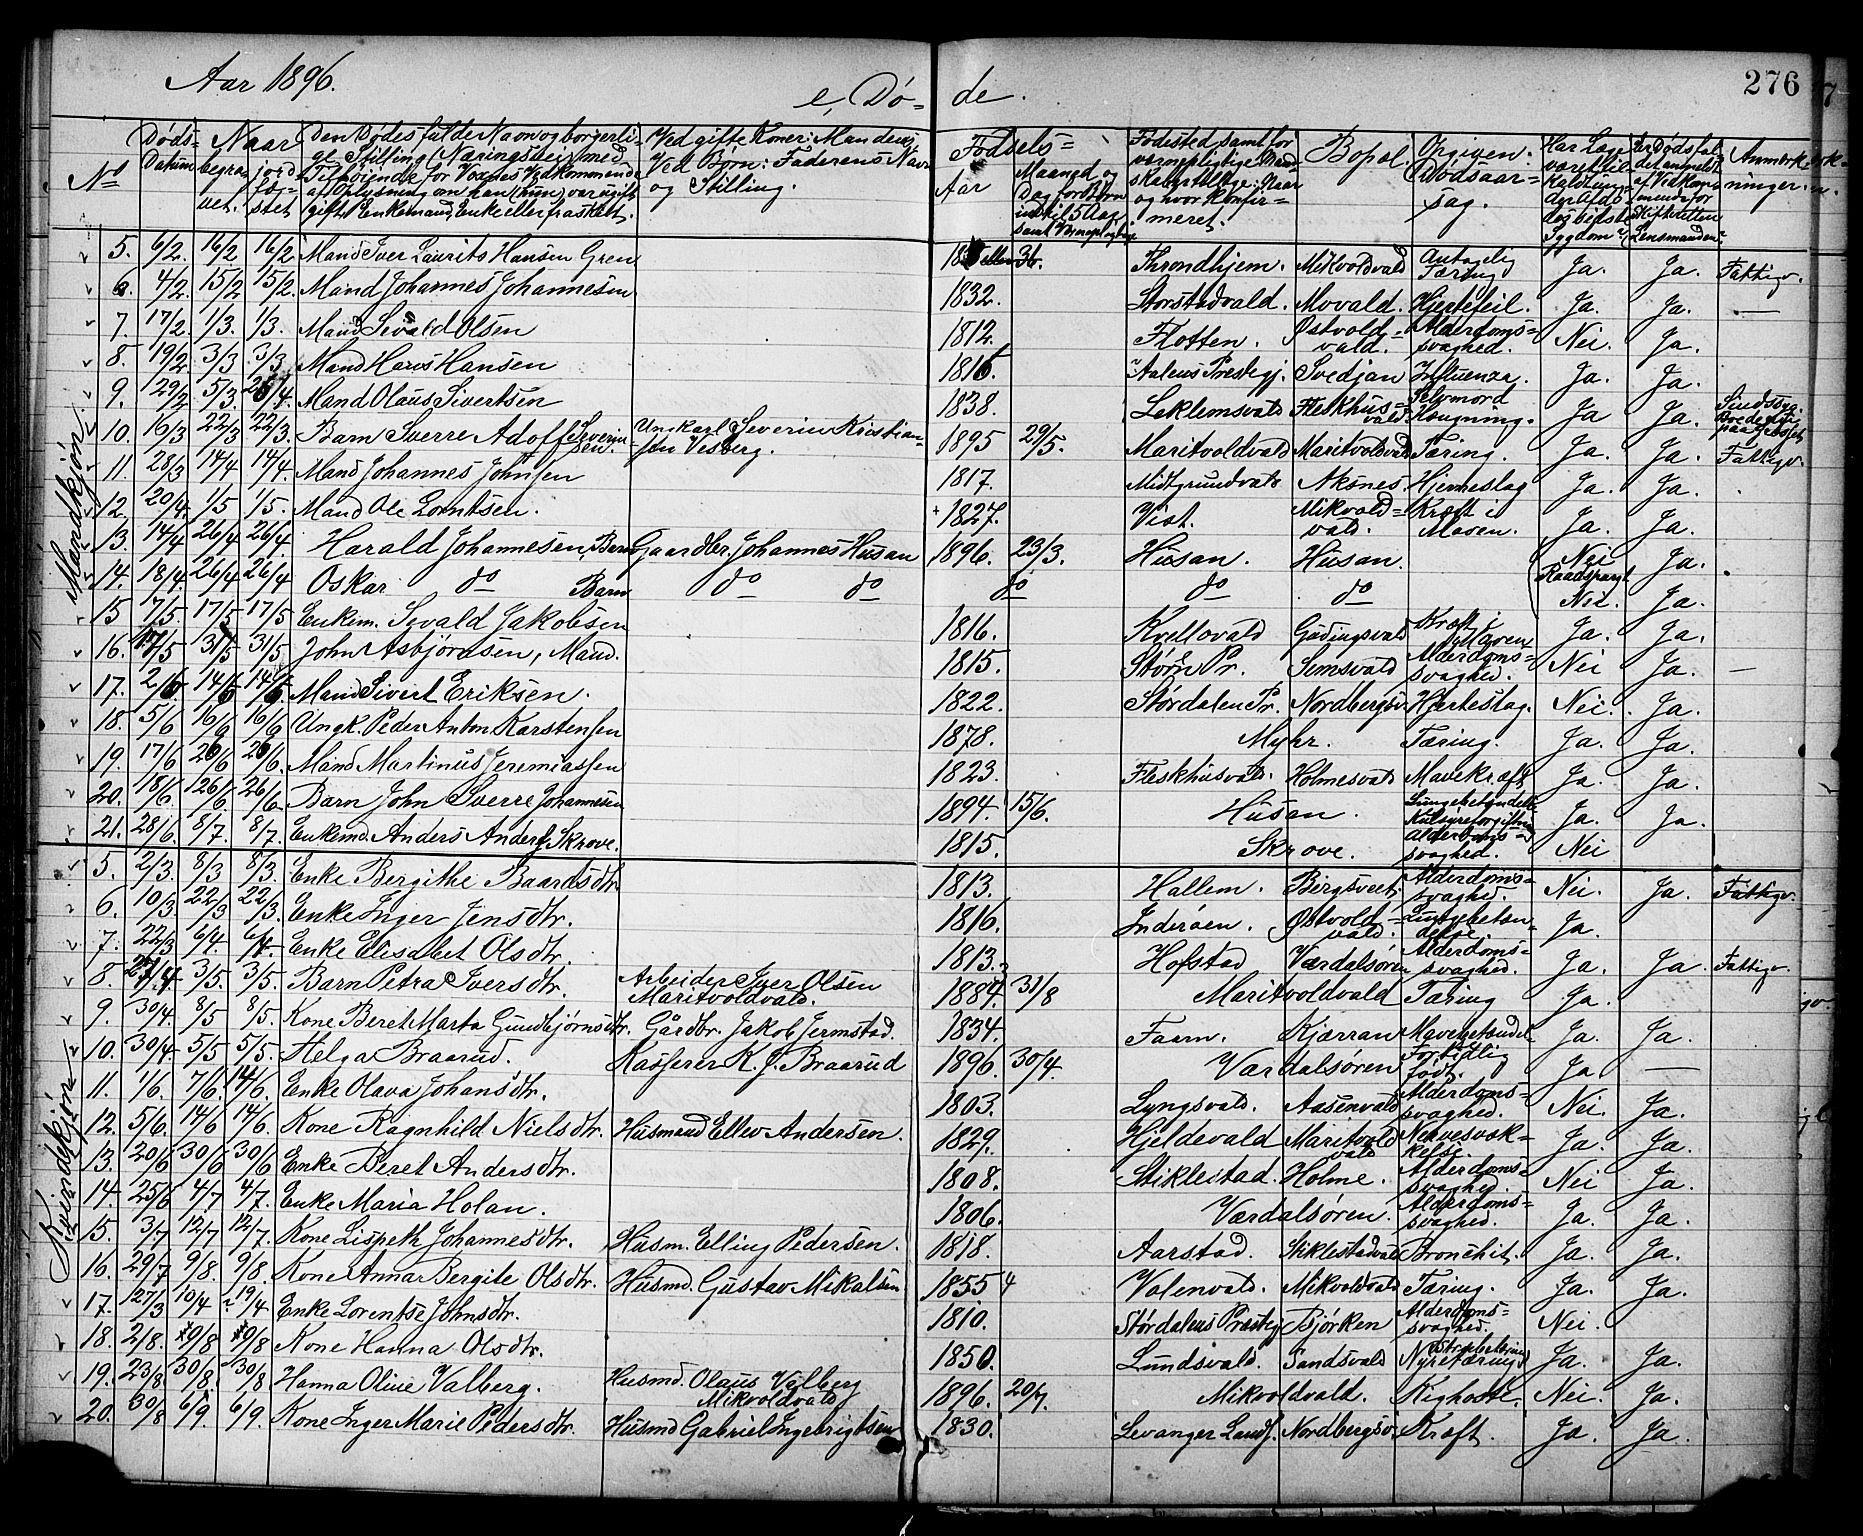 Aar 1896.
e, Dö-
de.
276
No
Döds-
Datum
Naar
begra-
vet.
jord
fæ-
stet
Den Dödes fulde Navn og borgerli-
ge Stilling (Næringsvei) med
Tilføiende for Voxnes Vedkommende
af Oplysning om han (hun) var ugift
gift, Enkemand, Enke eller fraskilt.
Ved gifte Koner: Mandens,
Ved Børn: Faderens Navn
og Stilling.
Födsels-
Aar
Maaned og
Dag for Børn
indtil 5 Aar
samt Værnepligtige
Fødested samt for
værnepligtige Mand-
skaber tillige: Naar
og hvor Konfir-
meret.
Bopæl.
Opgiven
Dödsaar-
sag.
Har Læge
været til-
kaldt under
den Afdø
des sidste
Sygdom?
Er Dødsfal
det anmeldt
af Vedkom-
mende for
Skifteretten
Lensmanden?
Anmærk-
ninger.
Mandkjön.
5. 6/2. 16/2 16/2 Mand Iver Laurits Hansen Gren 36. Throndhjem. Mikvoldvald Antagelig Tæring Ja. Ja. Fattigv.
6. 4/2. 15/2 15/2. Mand Johannes Johannesen 1832. Storstadvald. Movald. Hjertefeil. Ja. Ja. —
7. 17/2 1/3. 1/3. Mand Sevald Olsen 1812. Flotten. Østvold-vald. Alderdoms-svaghed. Nei. Ja.
8. 19/2 3/3 3/3 Mand Hans Hansen 1816. Aalens Prestegj. Svedjan Influenza. Ja. Ja.
9. 29/2 5/3. 26/4 Mand Olaus Sivertsen 1838. Leklemsvald Fleskhus-vald Selvmord Hængning. Ja Ja. Sindssyg.
10. 16/3 22/3 22/3. Barn Sverre Adolf Severin-sen. Ungkarl Severin Kristian-sen Vesberg. 1895 29/5. Maritvoldvald Maritvoldvald Tæring. Ja. Ja. Fattigv.
11. 28/3 14/4 14/4. Mand Johannes Johnsen 1817. Midtgrundvald Aksnes Hjerneslag Ja. Ja.
12. 20/4. 1/5 1/5. Mand Ole Lorntsen. 1827. Vist. Mikvold-vald. Kræft i Maven. Ja. Ja.
13. 14/4 26/4 26/4. Harald Johannesen, Barn Gaardbr. Johannes Husan 1896. 23/3. Husan. Husan Nei Ja.
14. 18/4. 26/4 26/4 Oskar do Barn do do do do do (Raadspurgt Nei. Ja.
15 7/5 17/5 17/5 Enkem. Sevald Jakobsen 1816. Kvellovald Gudingsvald Kræft i Maven Ja. Ja.
16. 17/5 31/5 31/5 John Asbjörnsen, Mand. 1815. Størn Pr. Semsvald Alderdoms-svaghed. Nei Ja. —
17. 2/6 14/6 14/6. Mand Sivert Eriksen. 1822. Størdalen Pr. Nordbergsv. Hjerteslag. Nei. Ja.
18. 5/6 16/6 16/6 Ungk. Peder Anton Karstensen 1878. Myhr. Tæring. Ja. Ja.
19. 17/6 26/6 26/6. Mand Martinus Jeremiassen 1823. Fleskhusvald. Holmesvald Mavekræft Ja. Ja.
20. 18/6. 26/6. 26/6. Barn John Sverre Johannesen 1894. 15/6. Husan. Lungebetændelse Kulsyreforgiftning Ja. Ja.
21. 28/6 8/7 8/7. Enkemd. Anders Anders. Skrove. 1815. Skrove. Alderdoms-svaghed. Nei
Kvindekjön
5. 2/3. 8/3 8/3. Enke Bergithe Baardsdtr. 1813. Hallem. Bergsveet. Alderdoms-svaghed. Nei. Ja. Fattigv.
6. 10/3 22/3 22/3. Enke Inger Jensdtr. 1816. Inderøen. Østvold-vald. Lungebetæn-delse. Ja.
7. 22/3 6/4. 6/4. Enke Elisabet Olsdtr. 1813. Hofstad Værdalsøren Alderdoms-svaghed. Ja. Ja. Fattigv.
8. 27/4 3/5 3/5. Barn Petra Iversdtr. Arbeider Iver Olsen Maritvoldvald. 31/8 Maritvoldvald Tæring Ja.
9. 30/4. 8/5 8/5. Kone Beret Marta Gundbjørnsdtr. Gårdbr. Jakob Jermstad. 1834. Faarn. Kjærran Mavebetændel. Ja. Ja.
10. 30/4. 5/5 5/5. Helga Braarud. Kasserer K. J. Braarud 1896. 30/4. Værdalsøren Fortidlig født. Ja —
11. 1/6. 7/6. 14/6. Enke Olava Johansdtr. 1803. Lyngsvald. Aasenvald Alderdoms-svaghed. Nei. Ja.
12. 5/6. 14/6 14/6. Kone Ragnhild Nielsdtr. Husmand Ellev Andersen. 1829. Hjeldevald Maritvold vald Nervesvæk-kelse. Ja. Ja.
13. 20/6 30/6 30/6 Enke Beret Andersdtr. 1808. Stiklestad. Holme. Alderdoms-svaghed. Nei Ja
14. 25/6 4/7 4/7. Enke Maria Holan. 1806. Værdalsøren. Alderdoms-svaghed. Ja. Ja.
15. 3/7 12/7 12/7. Kone Lispeth Johannesdtr. Husm. Elling Pedersen. 1818. Aarstad. Stiklestadvald Bronchit. Ja. Ja.
16. 29/7 9/8. 9/8. Kone Anna Bergite Olsdtr. Husmd. Gustav Mikalsen 1855 4 Valenvald. Mikvoldvald Tæring. Ja. Ja.
17. 27/3 10/4 ? 19/4 Enke Lorentse Johnsdtr. 1810. Størdalens Prestegj Bjørken Alderdoms-svaghed. Nei.
18. 2/8. 9/8 9/8 Kone Hanna Olsdtr. 1850. Lundsvald. Sandsvald Nyretæring Ja. Ja.
19. 23/8 30/8. 30/8 Hanna Oline Valberg. Husmd. Olaus Valberg Mikvoldvald 1896. 20/7. Mikvoldvald. Kighoste. Nei. Ja.
20. 30/8 6/9. 6/9. Kone Inger Marie Pedersdtr. Husmd Gabriel Ingebrigtsen 1830. Levanger Lands. Nordbergsv. Kræft. Ja. Ja.